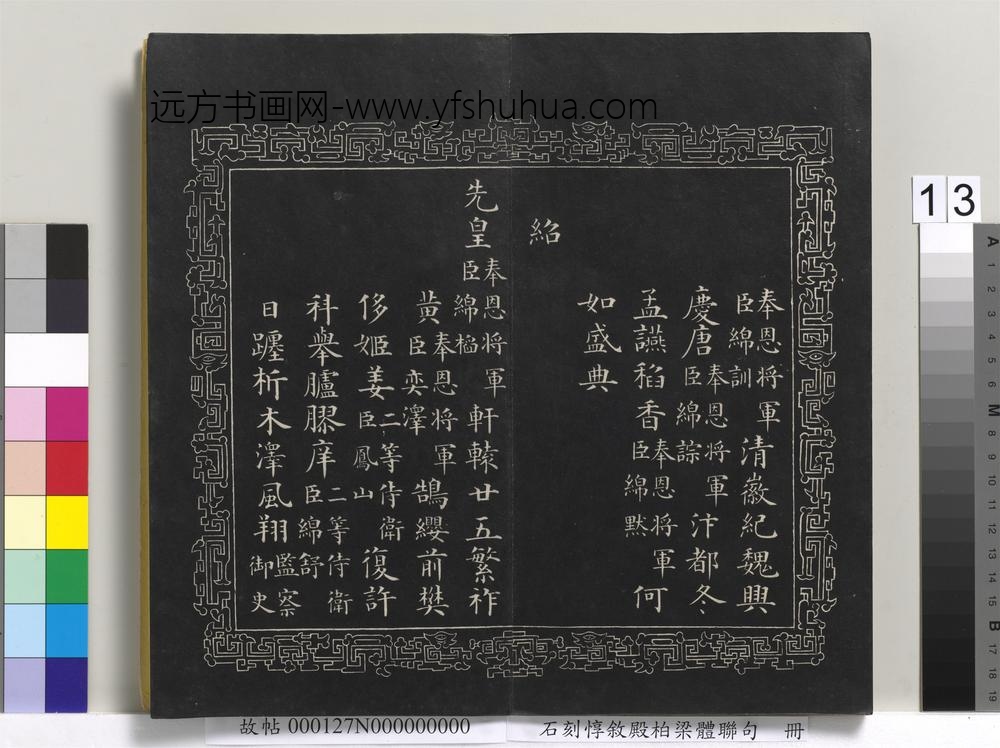 远方书画网-www.yfshuhua.com
13
奉恩将軍臣綿訓清徽紀魏興
慶唐奉恩将軍臣綿誴汴都冬
孟讌稻香奉恩将軍臣綿默何
如盛典
紹
先皇奉恩将軍臣綿軒轅廿五繁祚
黄奉恩将軍臣奕澤鵠纓前樊
侈姬姜二等侍衛臣鳳山復許
科舉臚膠庠二等侍衛臣綿舒
日躔析木澤風翔監察御史
A 1 2 3 4 5 6 M 8 9 10 11 12 13 14 15 B 17 18 19
故帖 000127N000000000
石刻惇敘殿柏梁體聯句 冊